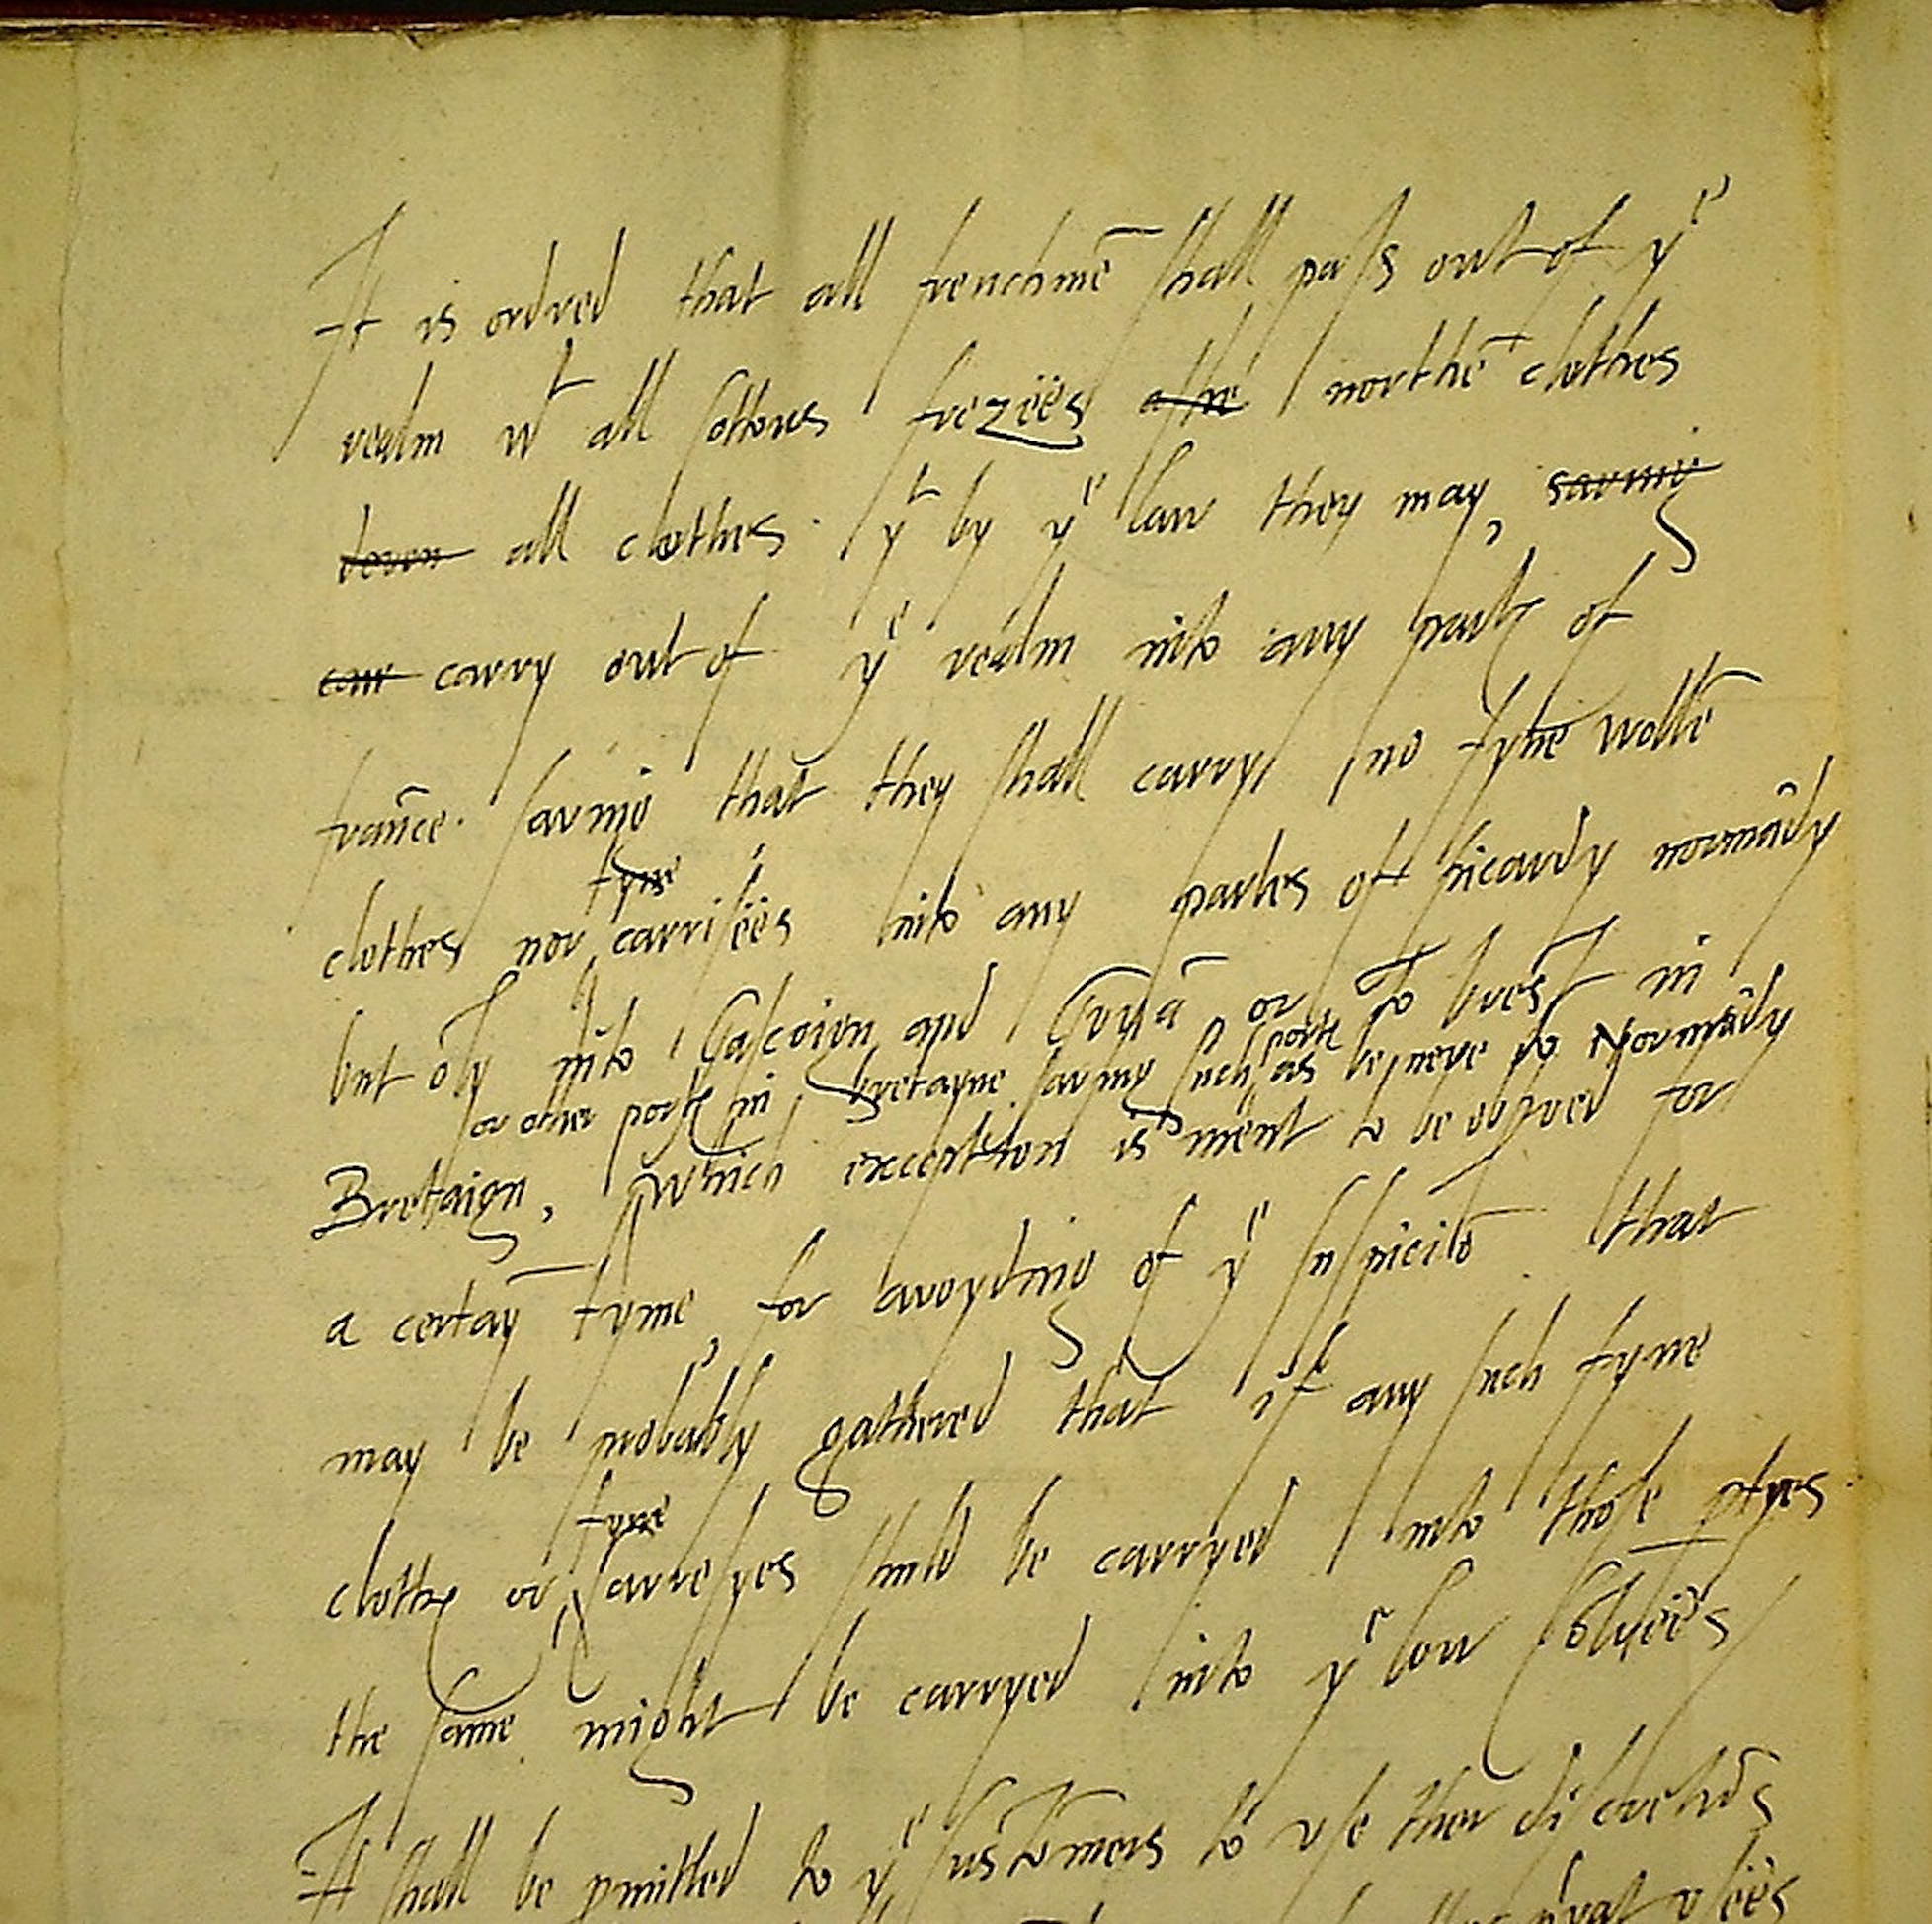 It is ordred that all frenchmē shall pass out of yᵉ
realm wᵗ all cottons frezees northē clothes
all clothes yᵗ by yᵉ law they may, saving
carry out of yᵉ realm into any part of
frāce. saving that they shall carry no fyne wollē
fyne
clothes nor carrisees into any partes of picardy normādy
but ōly into Gascoign and Guyā or to brest in
or other port in bretayne saving such port as be nere to Normādy
Bretaign, which exception is ment to be observed for
a certaȳ tyme, for avoyding of yᵉ suspiciō that
may be probably gathered that if any such fyne
fyne
cloth or carresyes shuld be carryed into those ptyes
the same might be carryed into yᵉ low Cōtrees
It shall be pmitted to yᵉ customers to use ther discretiōs